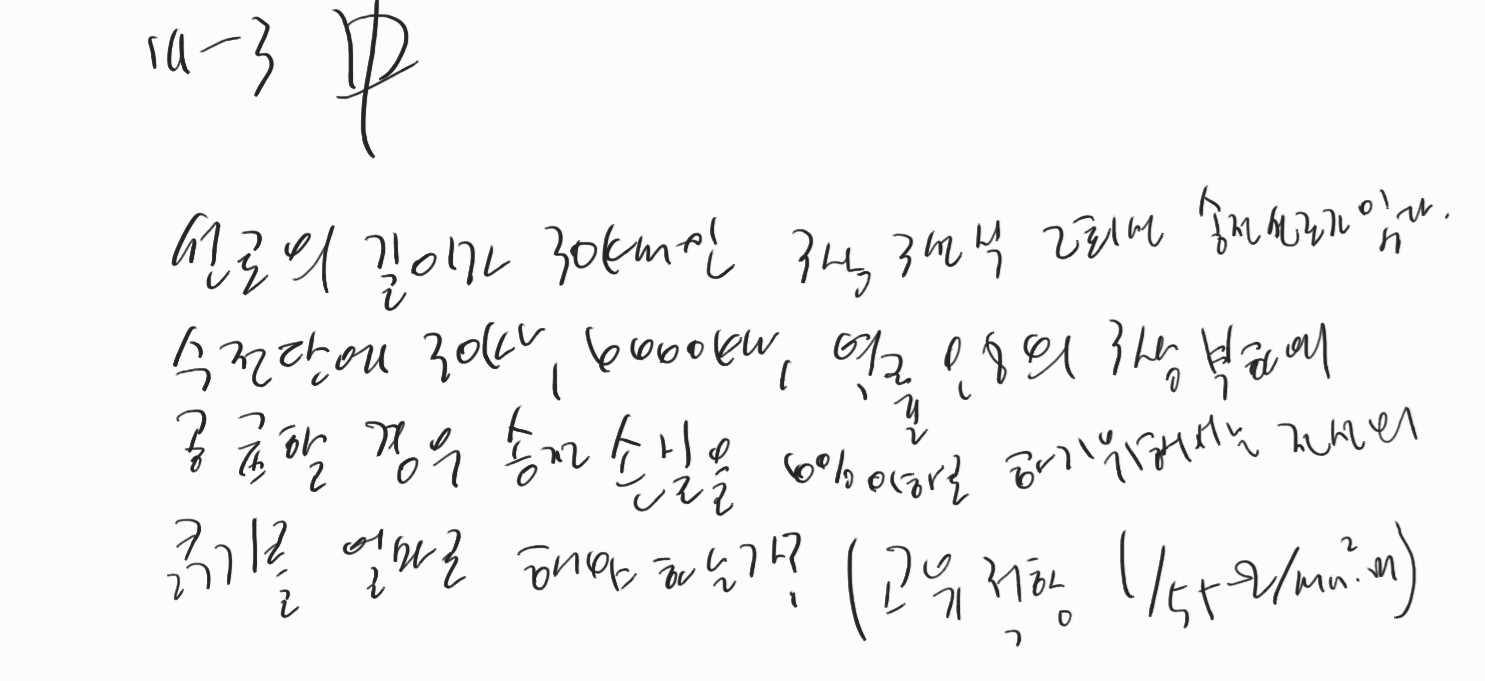 선로의 길이가 30km인 3상 3선식 2회선 송전선로가 있다.
수전단에 30kV, 6000kW, 역률 0.8의 3상 부하에
공급할 경우 송전 손실을 6% 이하로 하기위해서는 전선의
굵기를 얼마로 해야 하는가? (고유 저항 1/55 Ω/mm².m)